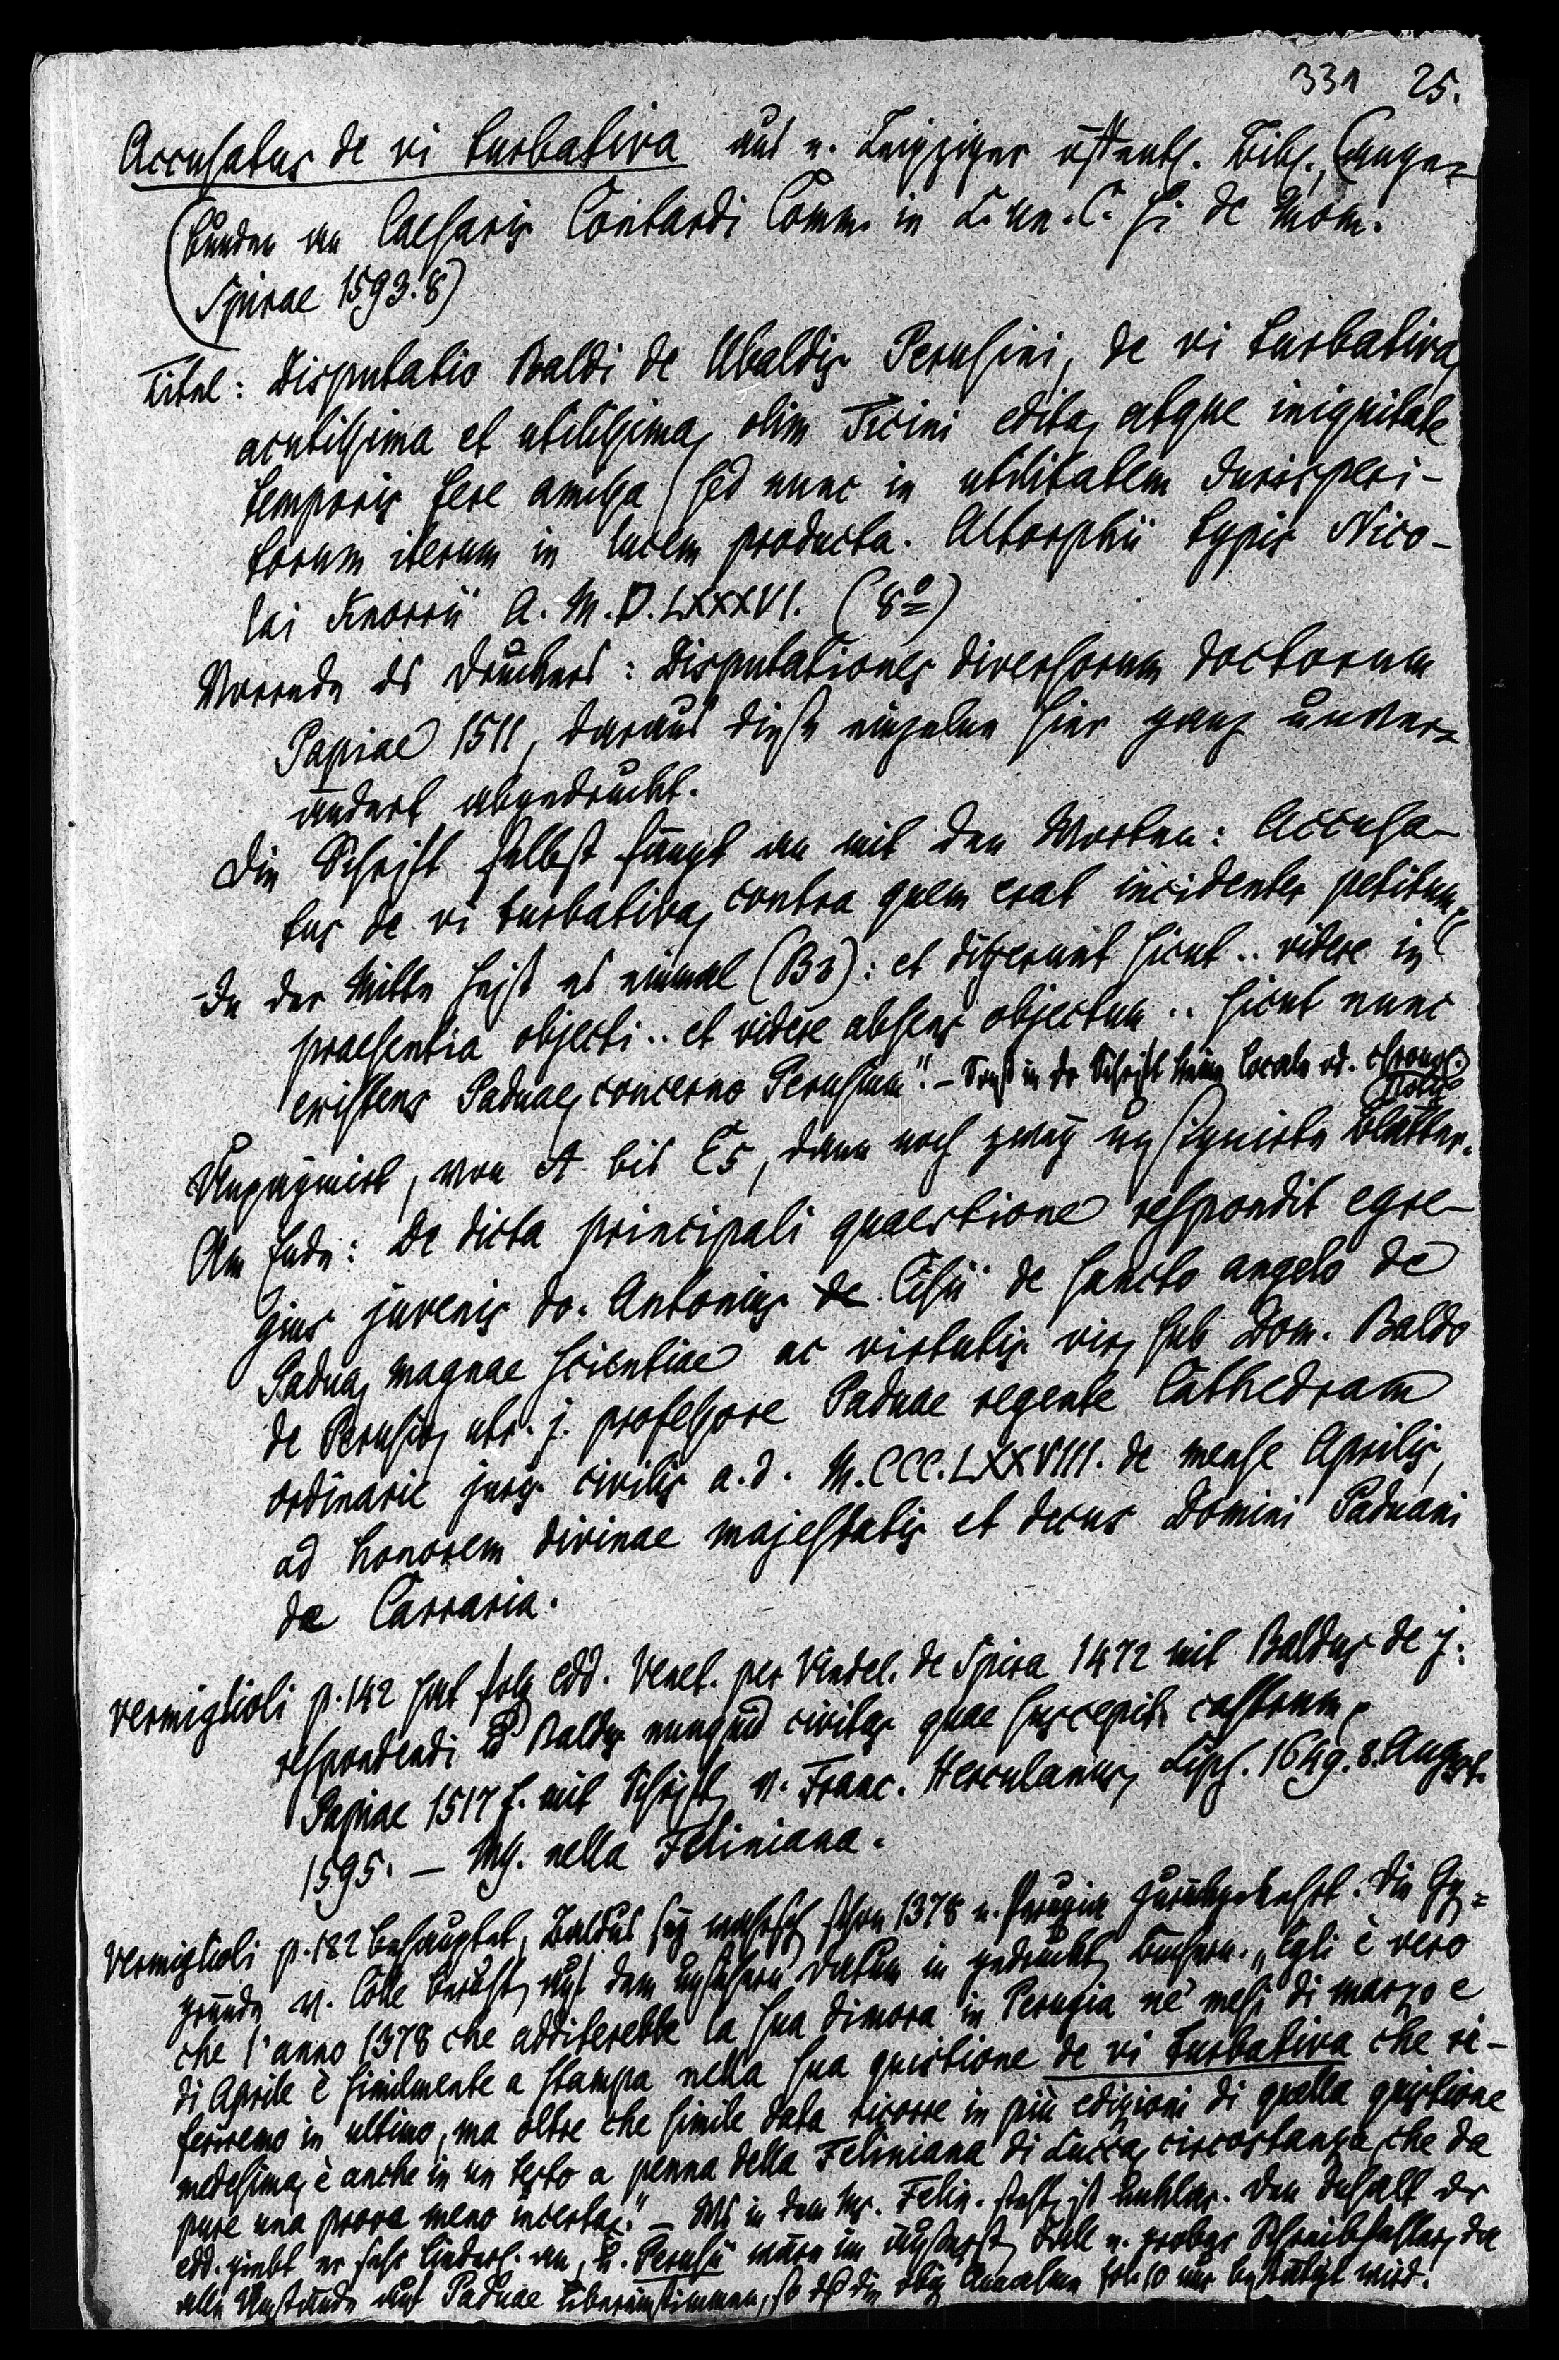 331 25.
Accusatus de vi turbativa aus d. Leipziger öffentl. Bibl., (ange-
(bunden an Caesaris Contardi Comm. in L. un. C. Si de Mom.
Spirae 1593. 8)
Titel: Disputatio Baldi de Ubaldis Perusini, de vi turbativa,
acutissima et utilissima, olim Ticini edita, atque iniquitate
temporis fere amissa, sed nunc in utilitatem Jurisperi-
torum iterum in lucem producta. Altorphii typis Nico-
lai Knorrii A. M.D.LXXXVI. (8º)
Vorrede ds Druckers: Disputationes diversorum doctorum
Papiae 1511, daraus diese einzelne hier ganz unver-
ändert abgedruckt.
Die Schrift selbst fängt an mit den Worten: Accusa-
tus de vi turbativa, contra quem erat incidenter petitum,
In der Mitte heißt es einmal (B3): et differunt sicut .. videre in
praesentia objecti .. et videre absens objectum .. sicut nunc
existens Paduae, concerno Perusium". – Sonst in dr Schrift keine locale od. chronol.
Notiz
Unpaginirt, von A bis E5, dann noch zwey unsignirte Blätter.
Am Ende: De dicta principali quaestione respondit egre-
gius juvenis do. Antonius de Cisii de sancto angelo de
Padua, magnae scientiae ac virtutis vir, sub Dom. Baldo
de Perusio, utr. j. professore Paduae regente Cathedram
ordinarie juris civilis a.d. M.CCC.LXXVIII. de mense Aprilis,
ad honorem divinae majestatis et decus Domini Paduani
de Carraria.
Vermiglioli p. 142 hat folg edd. Venet. per Vindel. de Spira 1472 mit Baldus de j.
respondendi Baldus nunquid civitas quae suscepit castrum,
Papiae 1517 f. mit Schrift v. Franc. Herculanus, Lips. 1649. 8. August.
1595. – Ms. nella Feliniana.
Vermiglioli p. 182 behauptet, Baldus sey schon 1378 n. Perugia zurückgekehrt. Die Ge-
gründe v. Colle beruht auf dem unsichern Datum in gedruckt Büchern. „Egli è vero
che l'anno 1378 che additerebbe la sua dimora in Perugia ne' mesi di marzo e
di Aprile è similmente a stampa nella sua quistione de vi turbativa che ri-
feriremo in ultimo, ma oltre che simile data ricorre in più edizioni di quella quistione
medesima, è anche in un testo a penna della Feliniana di Lucca, circostanza che da
pure una prova meno incerta." – Was in dem Ms. Felin. steht, ist unklar. Den Inhalt dr
edd. giebt er sehr an, u. Perusii wäre im äußerst Falle e. grober Schreibfehler, da
alle Umstände auf Paduae übereinstimmen, so dß die obige Annahme nur bestätigt wird.